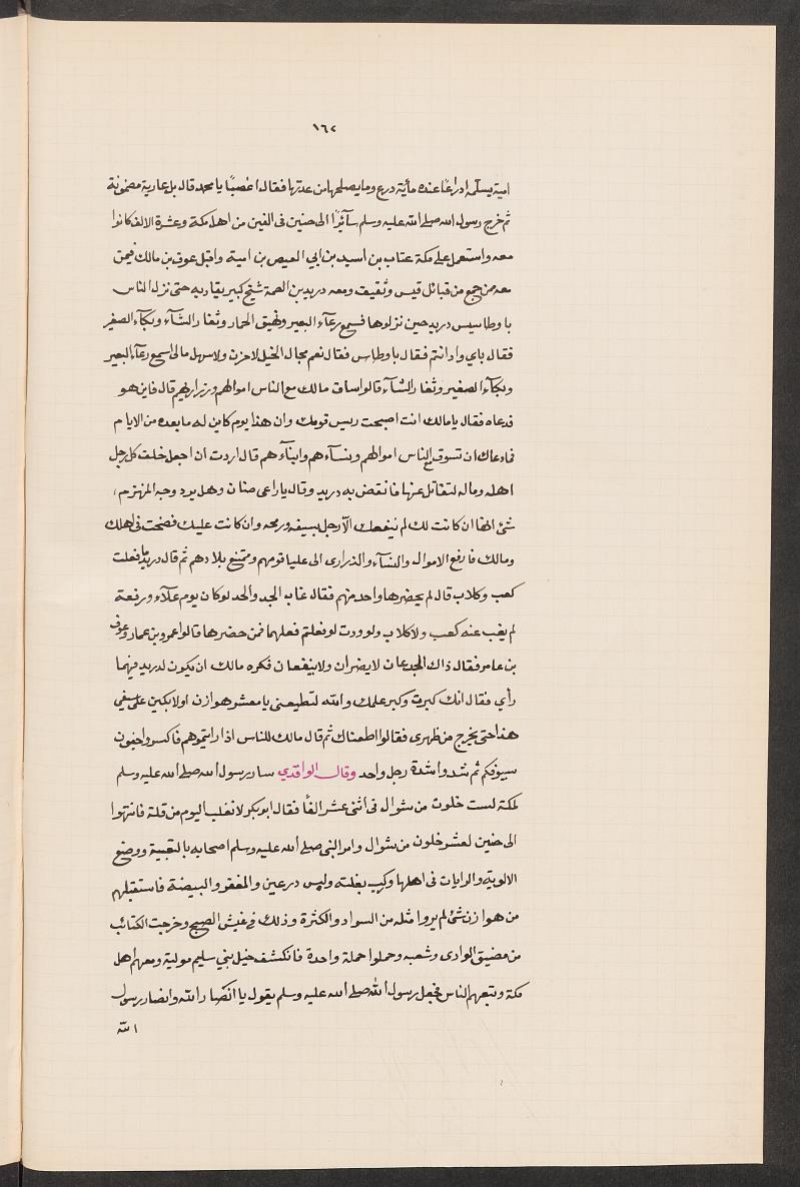 ١٦٢
امية يسئله ادراعًا عنده مأية درع وما يصلحها من عدتها فقال اغصبًا يا محمد قال بل عارية مضمونة
ثم خرج رسول الله صلى الله عليه وسلم سآئرًا الى حنين فى الفين من اهل مكة وعشرة الالف كانوا
معه واستعمل على مكة عتاب بن أسيد بن ابي العيص بن امية واقبل عوف بن مالك فيمن
معه من جمع من قبائل قيس وثقيف ومعه دريد بن الصمة شيخ كبير يقاد به حتى نزل الناس
با وطاس دريد حين نزلوها فسمع رغآء البعير ونهيق الحمار وثغا رالشآء وبكآء الصغير
فقال باي واد انتم فقال باوطاس فقال نعم مجال الخيل لاحزن ولا سهل مالى اسمع رغآء البعير
وبكآء الصغير وثغا رالشآء قالوا ساق مالك مع الناس اموالهم وزراريهم قال فاين هو
فدعاه فقال يا مالك انت اصبحت ريس قومك وان هذا يوم كاين له ما بعده من الايام
فما دعاك ان تسوق مع الناس اموالهم ونسآءهم وابنآءهم قال اردت ان اجعل خلف كل رجل
اهله وماله لتقاتل عنها فانقض به دريد وقال يا راعى ضان وهل يرد وجه المنهزم
شئ انها ان كانت لك لم ينفعك الآ رجل بسيفه ورمحه وان كانت عليك فضحت فى اهلك
ومالك فارفع الاموال والنسآء والذرارى الى عليا قومهم وممتنع بلادهم ثم قال دريد ما فعلت
كعب وكلاب قال لم يحضرها واحد منهم فقال غاب الجد والحد لو كان يوم علآء ورفعة
لم يغب عنه كعب ولا كلاب ولوودت لو فعلتم فعلهما فمن حضرها قالوا عمرو بن عمار وعوف
بن عامر فقال ذاك الجدعان لايضران ولا ينفعان فكره مالك ان يكون لدريد فيهما
رأي فقال انك كبرت وكبر علمك والله لتطيعنى يا معشر هوازن اولا تكين على سيفى
هذا حتى يخرج من ظهرى فقالوا اطعناك ثم قال مالك للناس اذا رايتموهم فاكسروا جفون
سيوفكم ثم شدوا شدة رجل واحد وقال الواقدي سار رسول الله صلى الله عليه وسلم
لمكة لست خلون من شوال فى أثنى عشر الفًا فقال ابو بكر لا نغلب اليوم من قلة فانتهوا
الى حنين لعشر خلون من شوال وامر النبى صلى الله عليه وسلم اصحابه بالتعبية ووضع
الالوية والرايات فى اهلها وركب بغلته ولبس درعين والمغفر والبيضة فاستقبلهم
من هوازن شئ لم يروا مثله من السواد والكثرة وذلك في غبش الصبح وخرجت الكتائب
من مضيق الوادى وشعبه وحملوا حملة واحدة فانكشف خيل بني سليم مولية ومعهم اهل
مكة وتبعهم الناس فجعل رسول الله صلى الله عليه وسلم يقول يا انصار الله وانصار رسول
الله